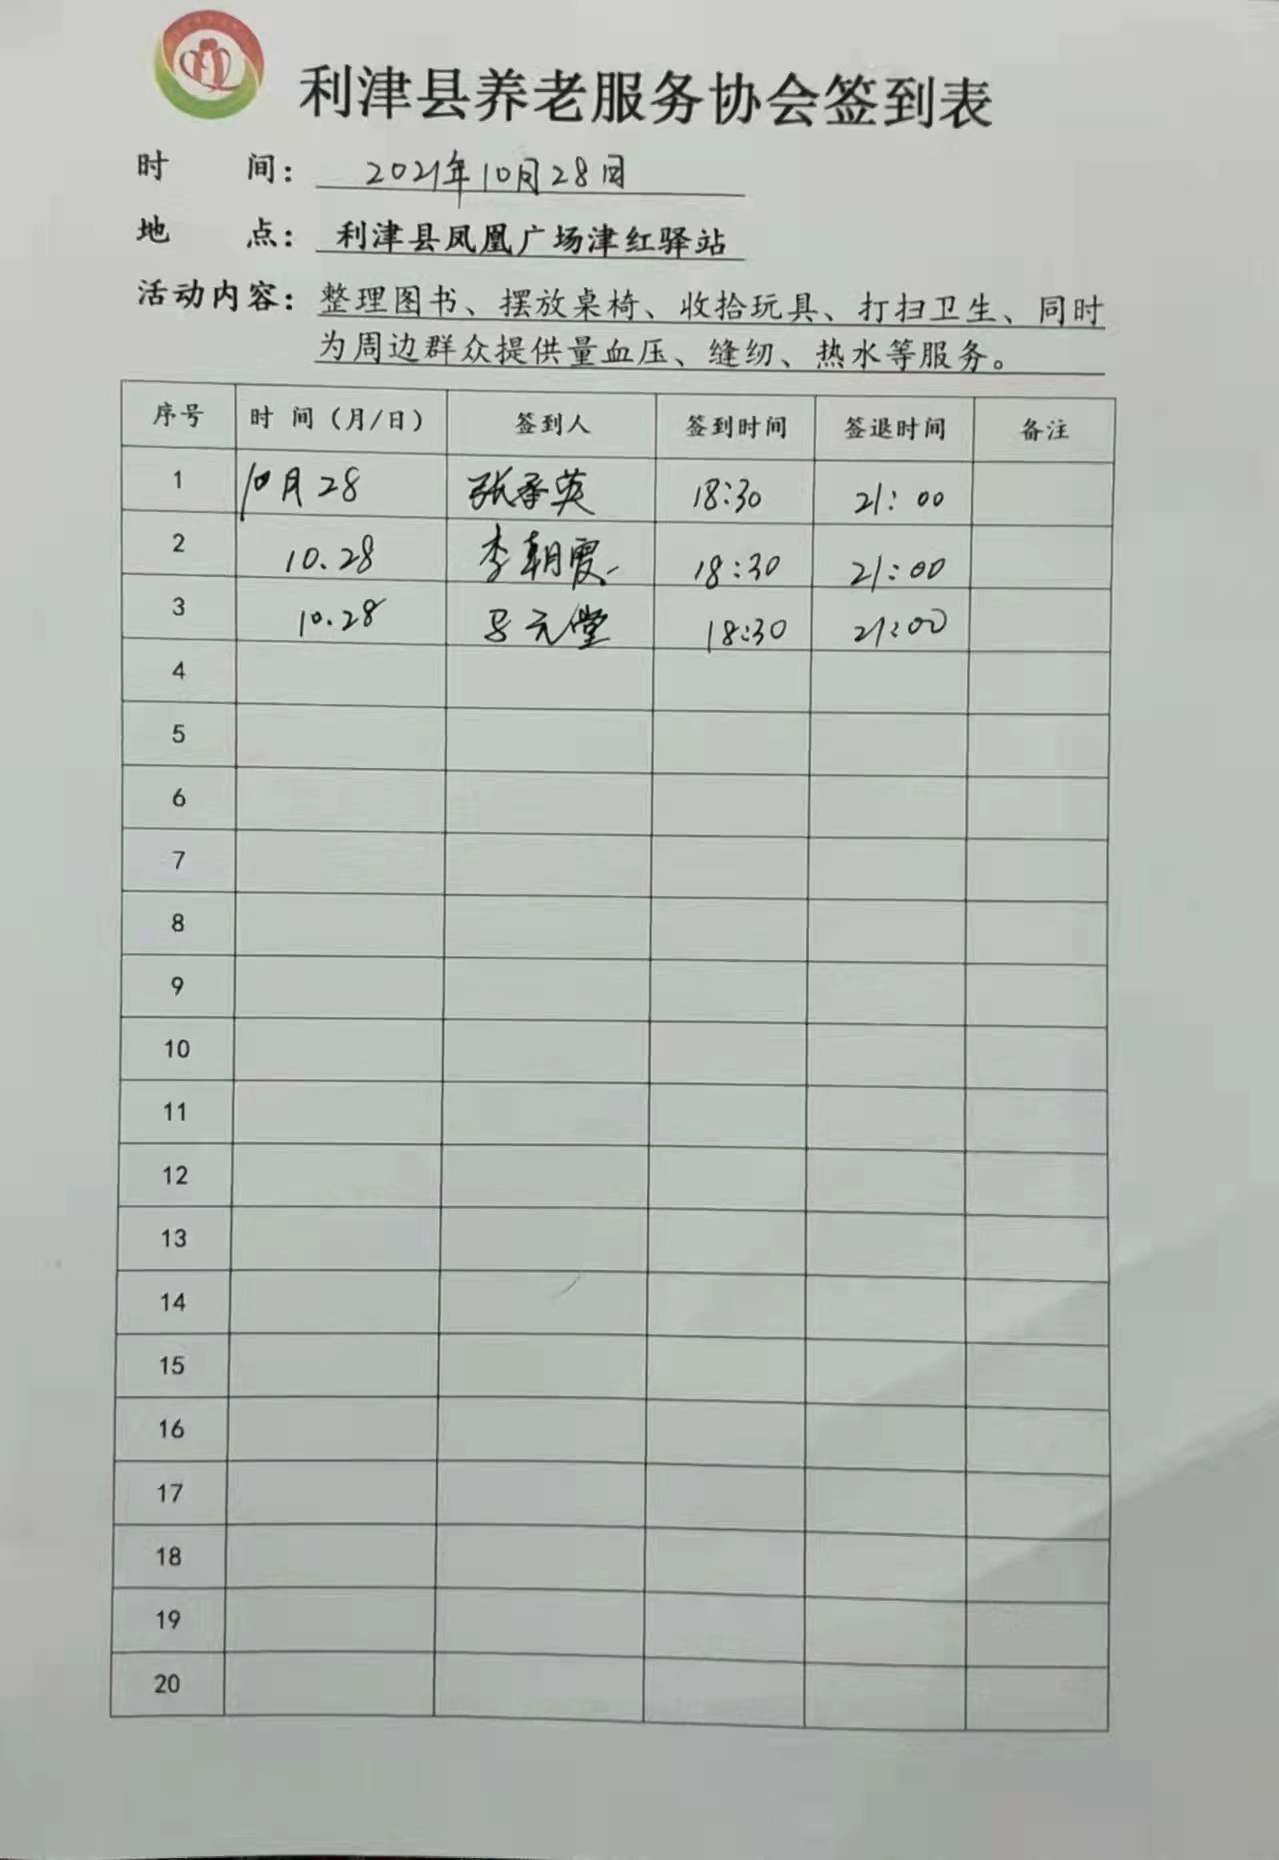 利津县养老服务协会签到表
时 间： 2021年10月28日
地 点： 利津县凤凰广场津红驿站
活动内容：整理图书、摆放桌椅、收拾玩具、打扫卫生、同时
为周边群众提供量血压、缝纫、热水等服务。
序号 时 间（月/日） 签到人 签到时间 签退时间 备注
1 10月28 张秀英 18:30 21:00
2 10.28 李朝霞 18:30 21:00
3 10.28 马元堂 18:30 21:00
4
5
6
7
8
9
10
11
12
13
14
15
16
17
18
19
20